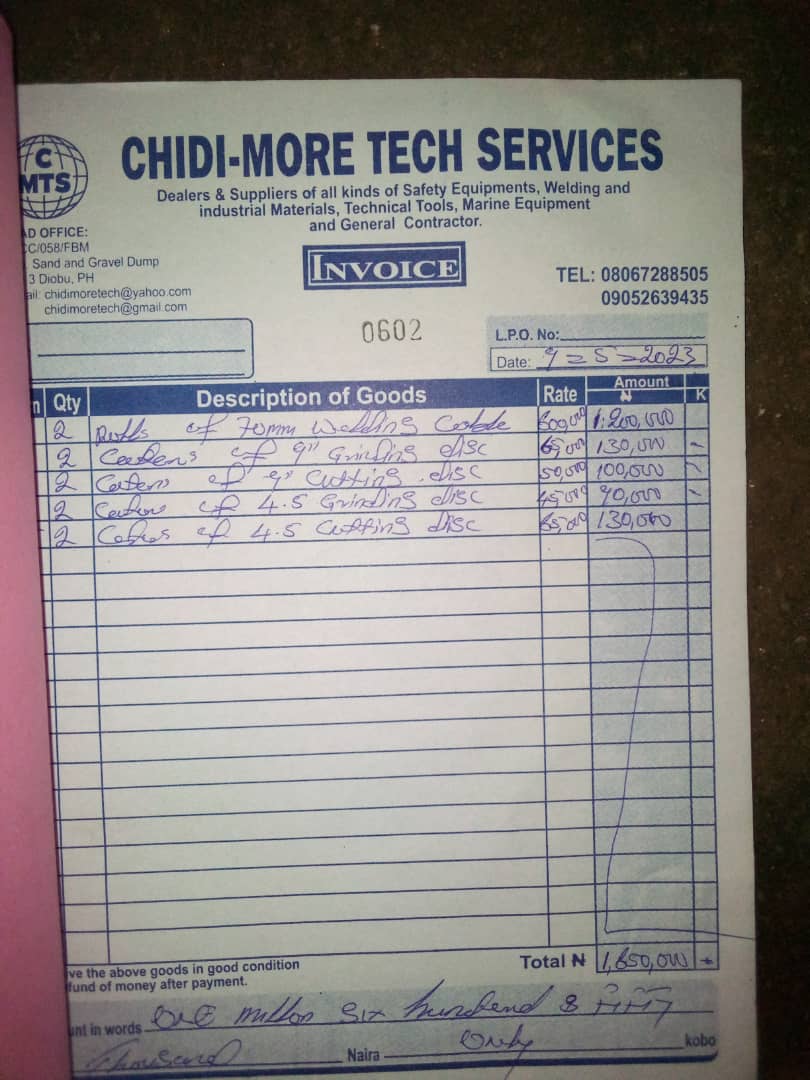 C
MTS
CHIDI-MORE TECH SERVICES
Dealers & Suppliers of all kinds of Safety Equipments, Welding and
industrial Materials, Technical Tools, Marine Equipment
and General Contractor.
AD OFFICE:
CC/058/FBM
Sand and Gravel Dump
3 Diobu, PH
ail: chidimoretech@yahoo.com
chidimoretech@gmail.com
INVOICE
TEL: 08067288505
09052639435
0602
L.P.O. No:
Date: 9=5=2023
n Qty Description of Goods Rate Amount ₦ K
2 Rolls of 70mm Welding Cable 600,000 1,200,000
2 of 9" Grinding disc 65,000 130,000 -
2 of 9" Cutting disc 50,000 100,000 -
2 of 4.5 Grinding disc 45,000 90,000 -
2 of 4.5 Cutting disc 65,000 130,000
ve the above goods in good condition
fund of money after payment.
Total ₦ 1,650,000 =
unt in words One million Six hundred & fifty
Thousand Naira Only kobo